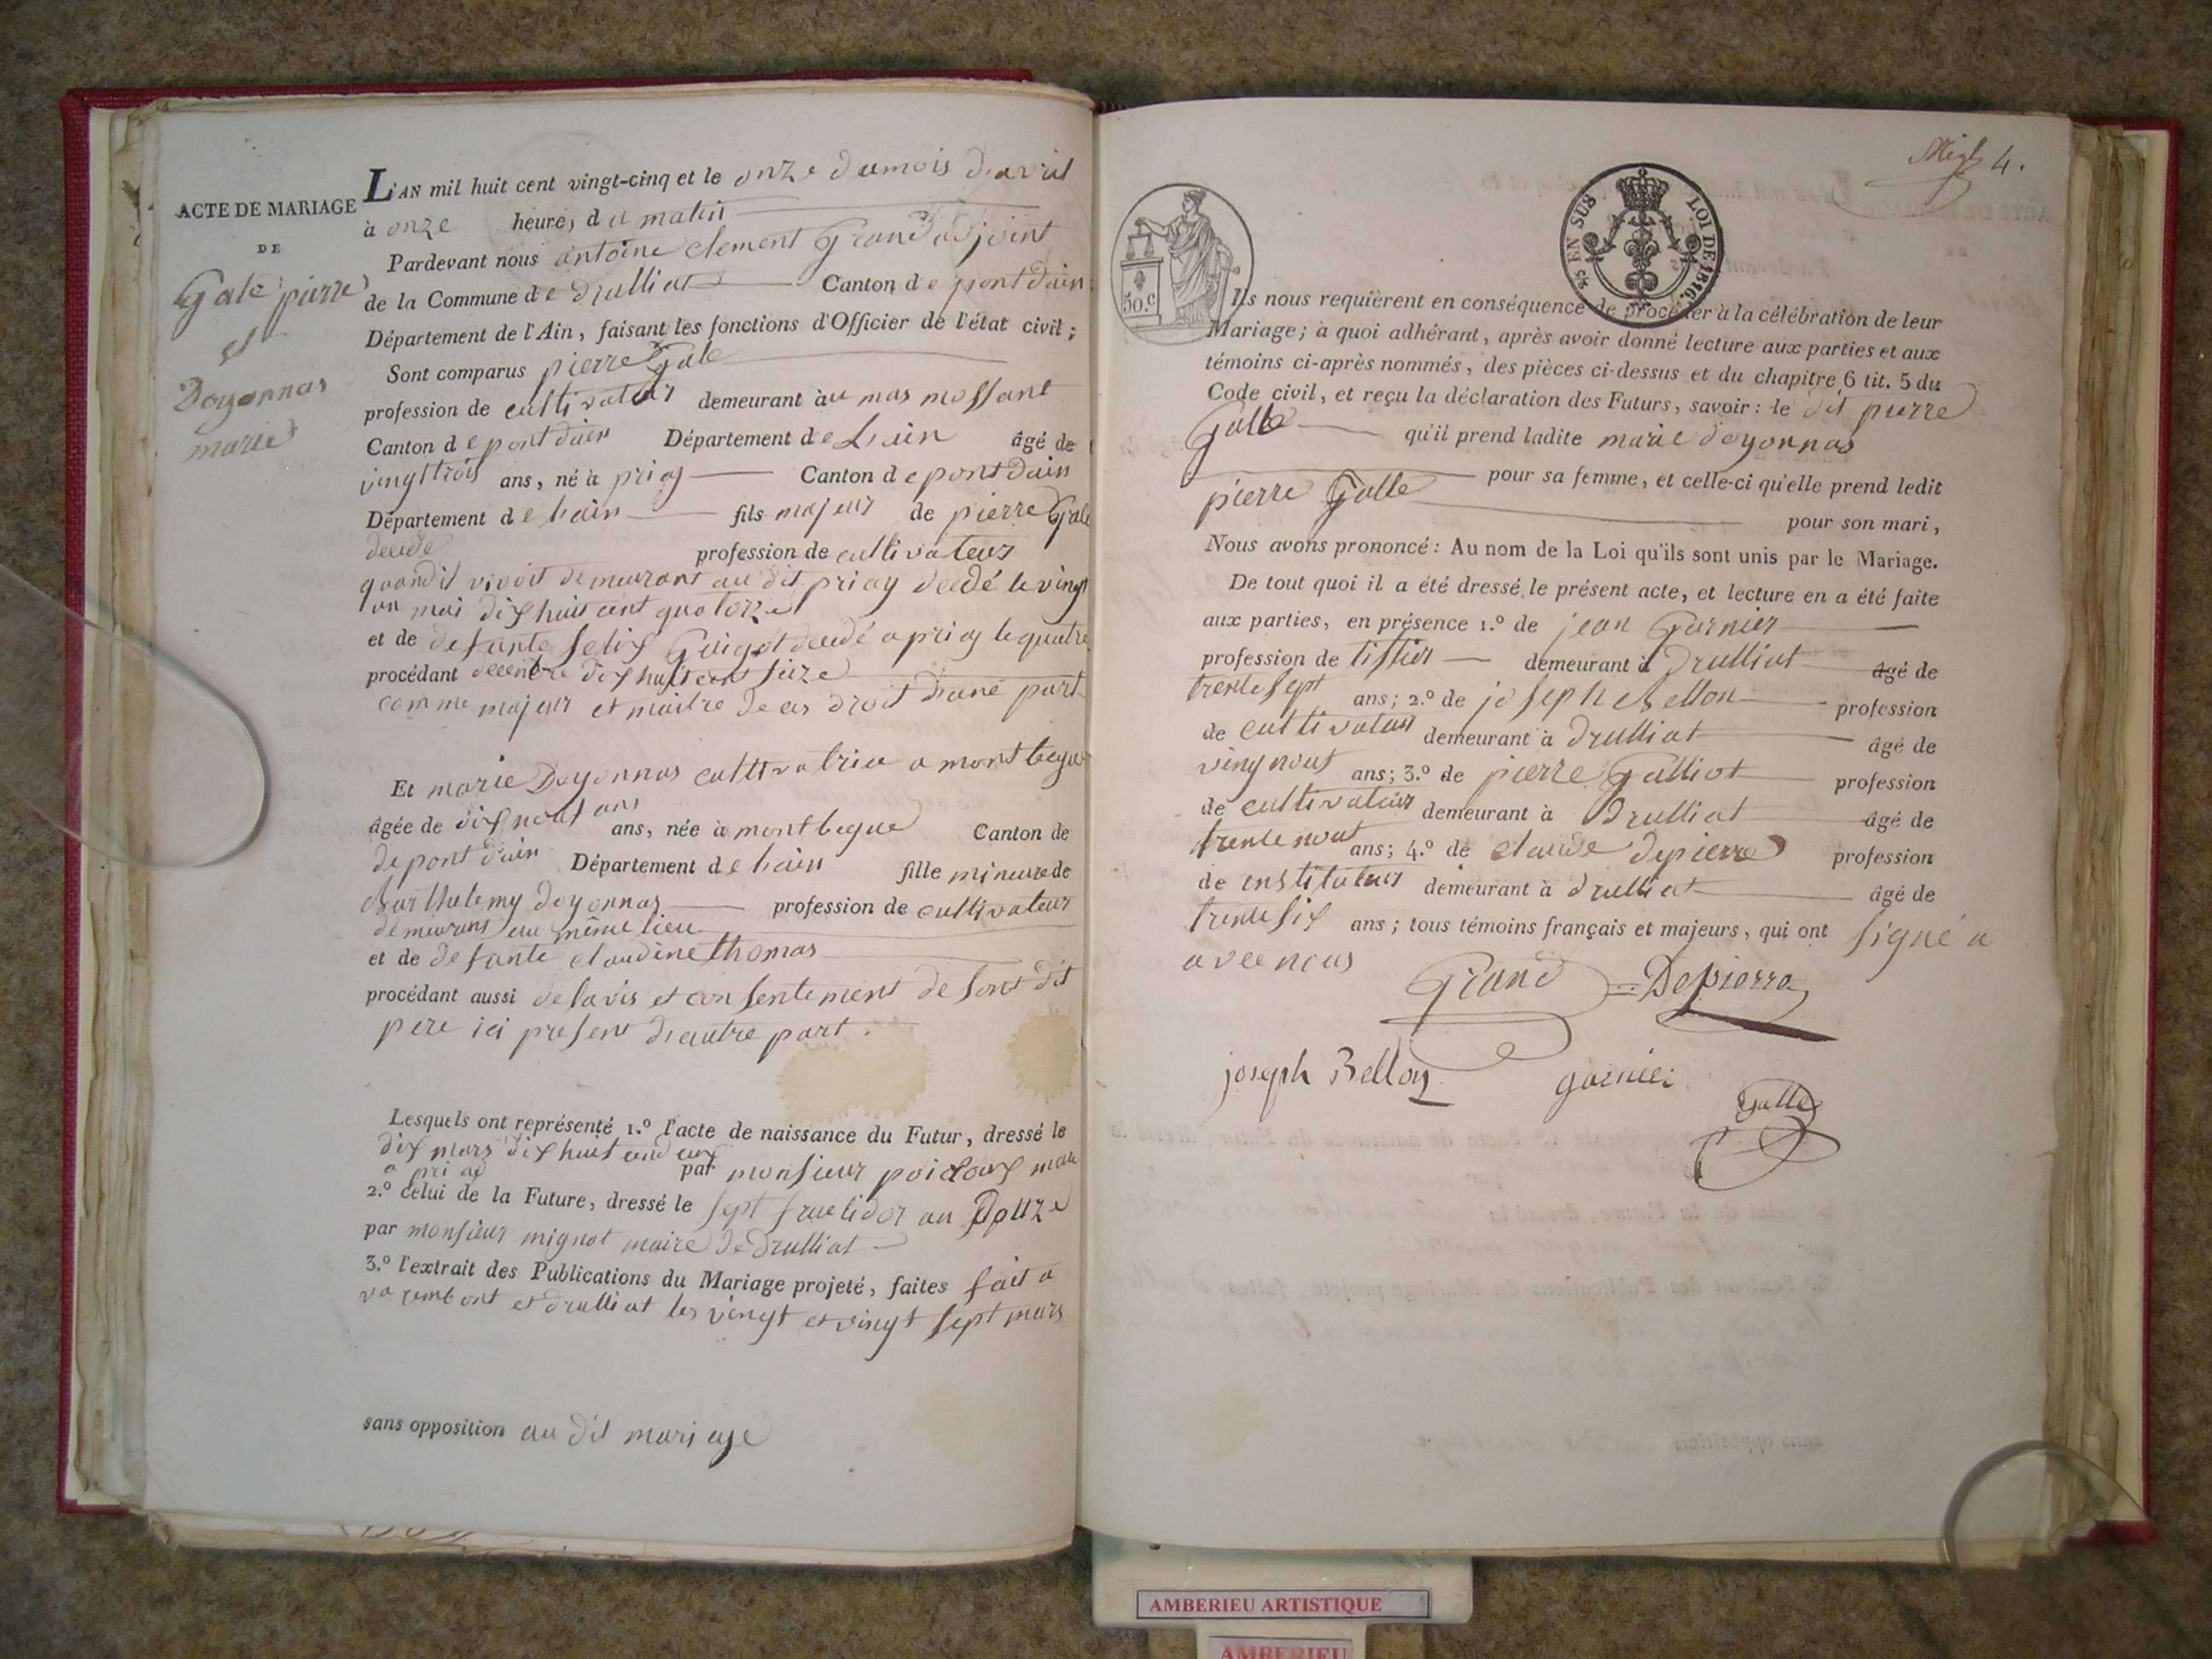 ACTE DE MARIAGE
DE
Gale pierre
et
Doyonnas
marie
L'AN mil huit cent vingt-cinq et le onze du mois d'avril
à onze heures du matin
Pardevant nous antoine clement Grand adjoint
de la Commune de Drulliat Canton de pont dain
Département de l'Ain, faisant les fonctions d'Officier de l'état civil;
Sont comparus pierre Gale
profession de cultivateur demeurant au mas mossant
Canton de pont dain Département de Lain âgé de
vingt trois ans, né à priay Canton de pont dain
Département de hain fils majeur de pierre Gale
decedé profession de cultivateur
quand il vivoit demeurant au dit priay decedé le vingt
un mai dix huit cent quatorze
et de defunte felix Guigot decedé a priay le quatre
procédant decembre dix huit cent seize
comme majeur et maitre de ces droit d'une part
Et marie Doyonnas cultivatrice a mont begue
âgée de dix nouf ans ans, née à mont begue Canton de
de pont d'ain Département de hain fille mineure de
Barthelemy doyonnas profession de cultivateur
demeurant au même lieu
et de defunte claudine thomas
procédant aussi de lavis et consentement de sont dit
pere ici present d'autre part.
Lesquels ont représenté 1.º l'acte de naissance du Futur, dressé le
dix mars dix huit cend
a priay par monsieur poidoux
2.º celui de la Future, dressé le sept fructidor an
par monsieur mignot maire de Drulliat
3.º l'extrait des Publications du Mariage projeté, faites fait a
varembont et drulliat les vingt et vingt sept mars
sans opposition au dit mariage
4.
50.c
25 EN SUS LOI DE 1816.
Ils nous requièrent en conséquence de procéder à la célébration de leur
Mariage; à quoi adhérant, après avoir donné lecture aux parties et aux
témoins ci-après nommés, des pièces ci-dessus et du chapitre 6 tit. 5 du
Code civil, et reçu la déclaration des Futurs, savoir: le dit pierre
Galle qu'il prend ladite marie doyonnas
pour sa femme, et celle-ci qu'elle prend ledit
pierre Galle pour son mari,
Nous avons prononcé: Au nom de la Loi qu'ils sont unis par le Mariage.
De tout quoi il a été dressé le présent acte, et lecture en a été faite
aux parties, en présence 1.º de jean Garnier
profession de tissier demeurant à Drulliat âgé de
trente sept ans; 2.º de joseph Bellon profession
de cultivateur demeurant à drulliat âgé de
ving nouf ans; 3.º de pierre Galliot profession
de cultivateur demeurant à Drulliat âgé de
trente nouf ans; 4.º de claude depierre profession
de enstituteur demeurant à drulliat âgé de
trente six ans; tous témoins français et majeurs, qui ont signé a
avec nous
Grand Depierre
joseph Bellon garnier
Galle
AMBERIEU ARTISTIQUE
AMBERIEU